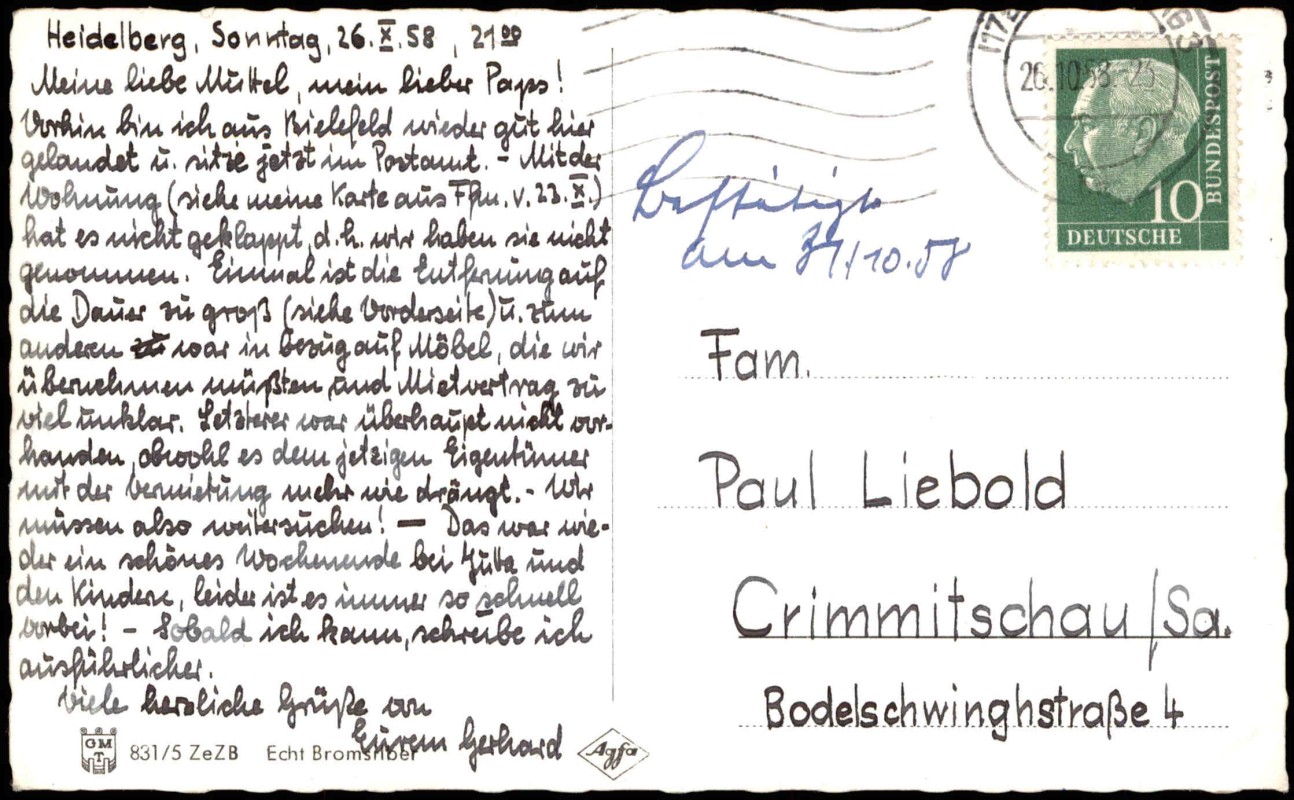 Heidelberg, Sonntag, 26.X.58, 21⁰⁰
Meine liebe Muttel, mein lieber Paps!
Vorhin bin ich aus Bielefeld wieder gut hier
gelandet u. sitze jetzt im Postamt. - Mit der
Wohnung (siehe meine Karte aus Ffm. v. 23.X.)
hat es nicht geklappt, d.h. wir haben sie nicht
genommen. Einmal ist die Entfernung auf
die Dauer zu groß (siehe Vorderseite) u. zum
anderen zu war in bezug auf Möbel, die wir
übernehmen müßten, und Mietvertrag zu
viel unklar. Letzterer war überhaupt nicht vor-
handen, obwohl es dem jetzigen Eigentümer
mit der Vermietung mehr wie drängt. - Wir
müssen also weitersuchen! — Das war wie-
der ein schönes Wochenende bei Jutta und
den Kindern, leider ist es immer so schnell
vorbei! - Sobald ich kann, schreibe ich
ausführlicher.
Viele herzliche Grüße von
Eurem Gerhard
GMT 831/5 ZeZB Echt Bromsilber
Agfa
26.10.58.-23
BUNDESPOST
10
DEUTSCHE
Bestätigt
am 31/10.58
Fam.
Paul Liebold
Crimmitschau/Sa.
Bodelschwinghstraße 4